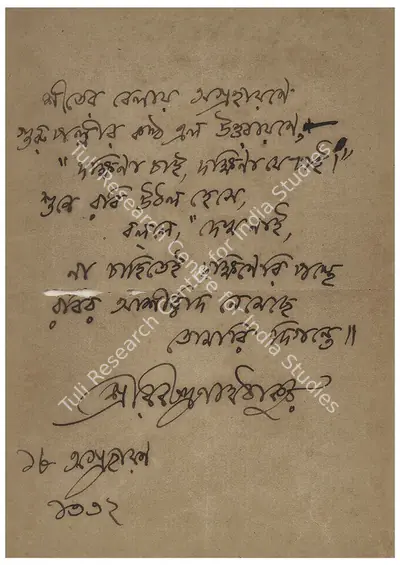 শীতের বেলায় অগ্রহায়ণে
শুষ্ক কণ্ঠ এল উত্তরায়ণে,
"দক্ষিণা চাই, দক্ষিণা যে চাই।"
শুনে রবি উঠল হেসে,
বললে, "দেখ নাই,
না চাহিতেই দক্ষিণেরি
রবির আশীর্ব্বাদ নেমেছে
তোমারি দিগন্তে॥
শ্রীরবীন্দ্রনাথ ঠাকুর
১৮ অগ্রহায়ণ
১৩৩২
Tuli Research Centre for India Studies
Tuli Research Centre for India Studies